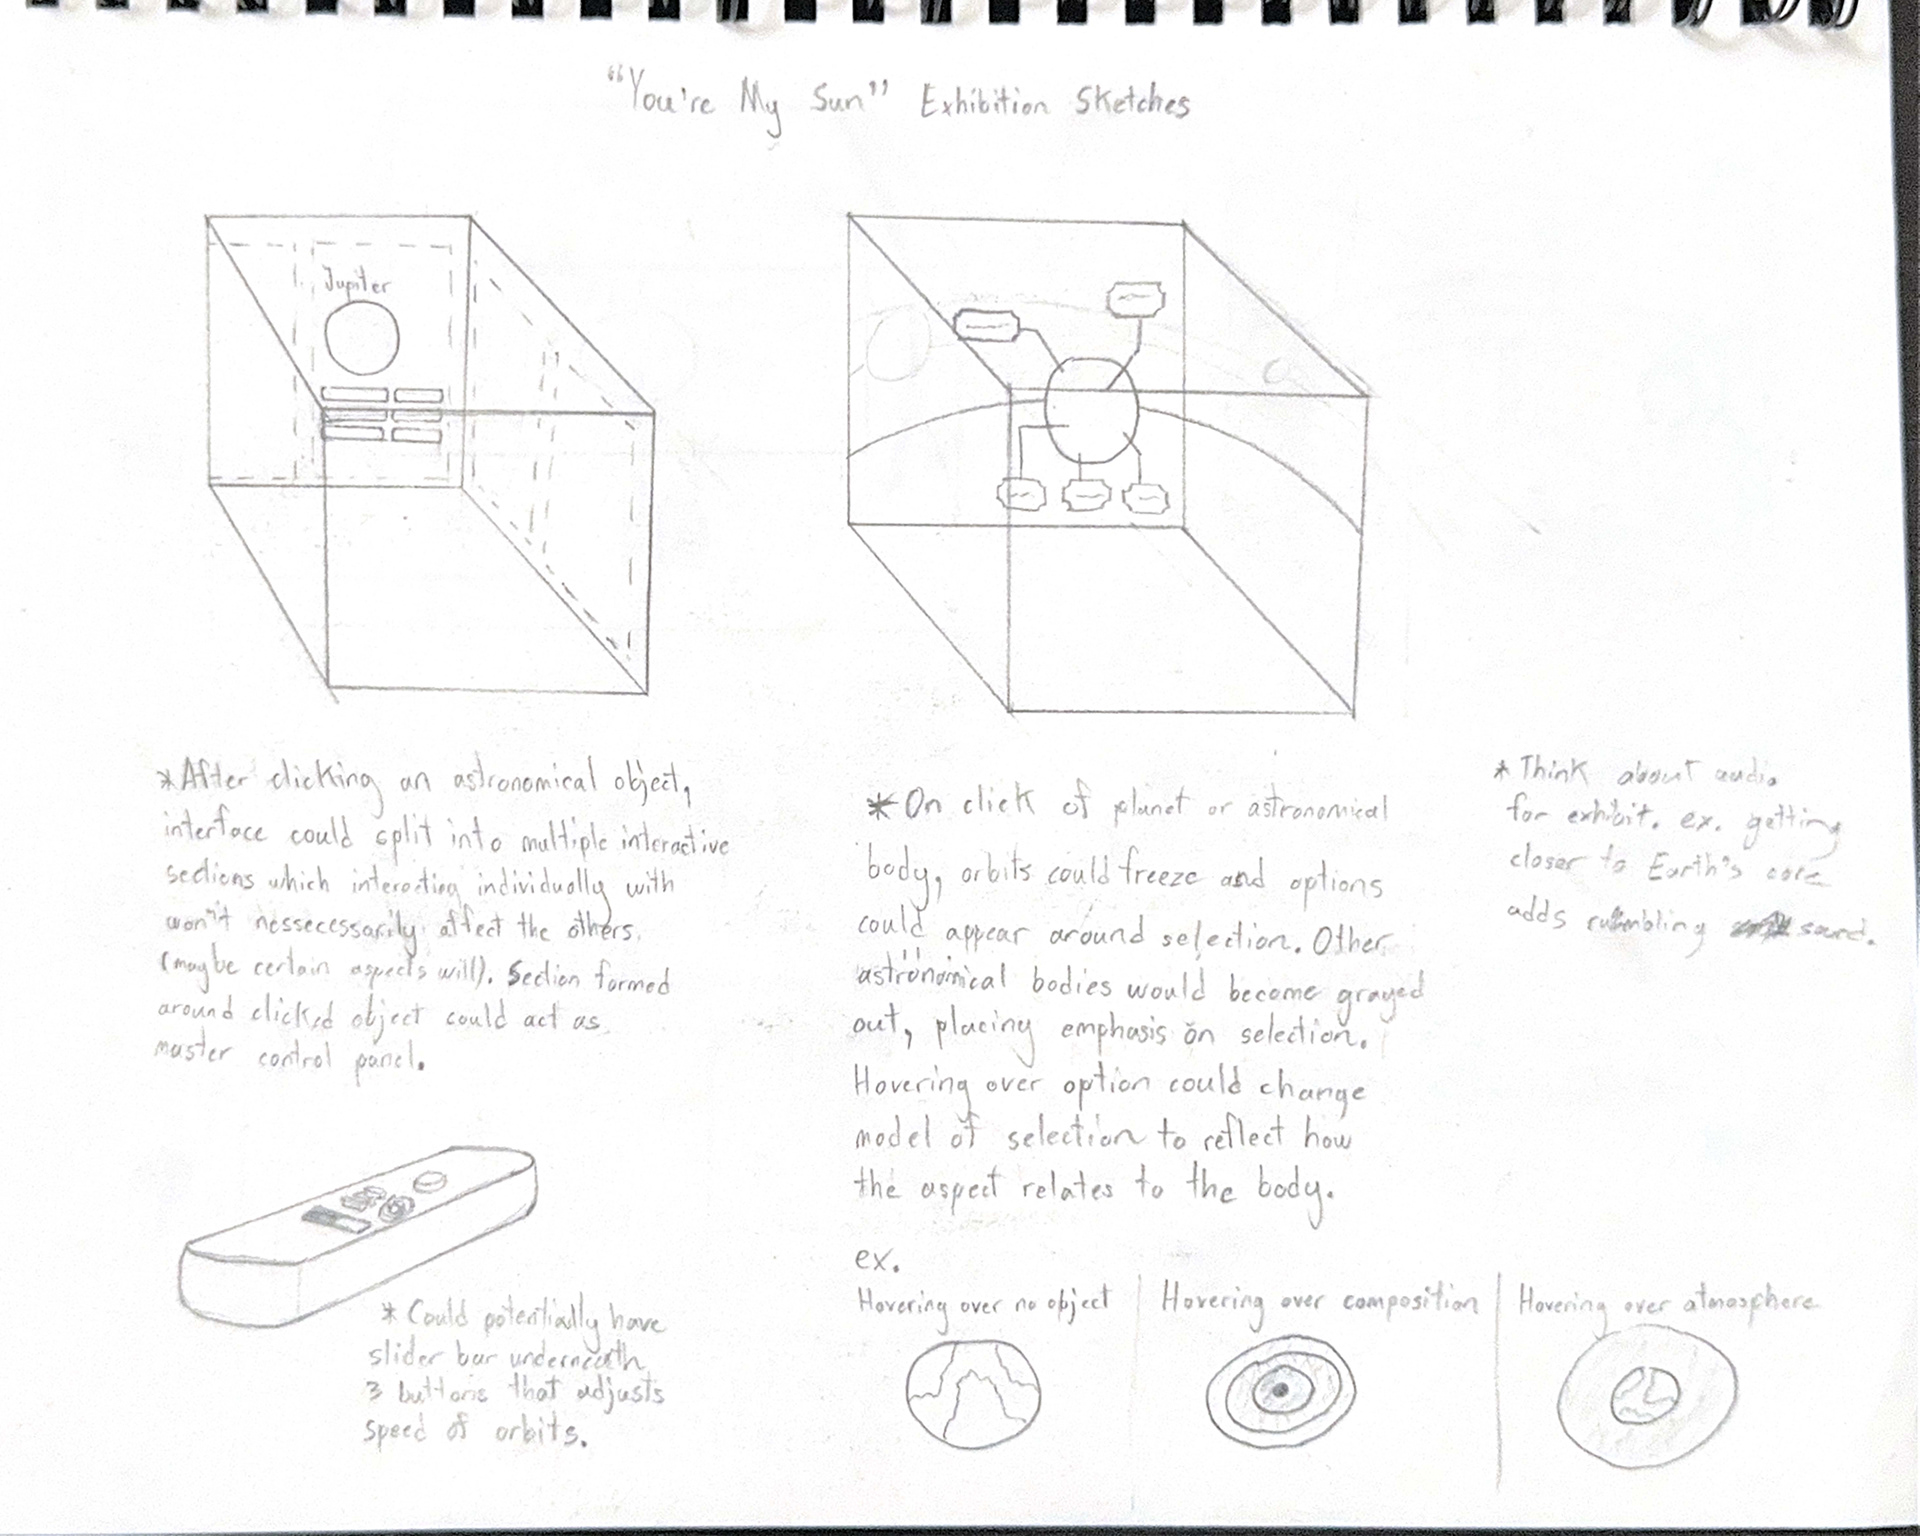 "You're My Sun" Exhibition Sketches
Jupiter
*After clicking an astronomical object,
interface could split into multiple interactive
sections which interacting individually with
won't nessecessarily affect the others.
(maybe certain aspects will). Section formed
around clicked object could act as
master control panel.
* Could potentially have
slider bar underneath
3 buttons that adjusts
speed of orbits.
*On click of planet or astronomical
body, orbits could freeze and options
could appear around selection. Other
astronomical bodies would become grayed
out, placing emphasis on selection.
Hovering over option could change
model of selection to reflect how
the aspect relates to the body.
ex.
Hovering over no object
Hovering over composition
Hovering over atmosphere
* Think about audio
for exhibit. ex. getting
closer to Earth's core
adds rumbling sound.